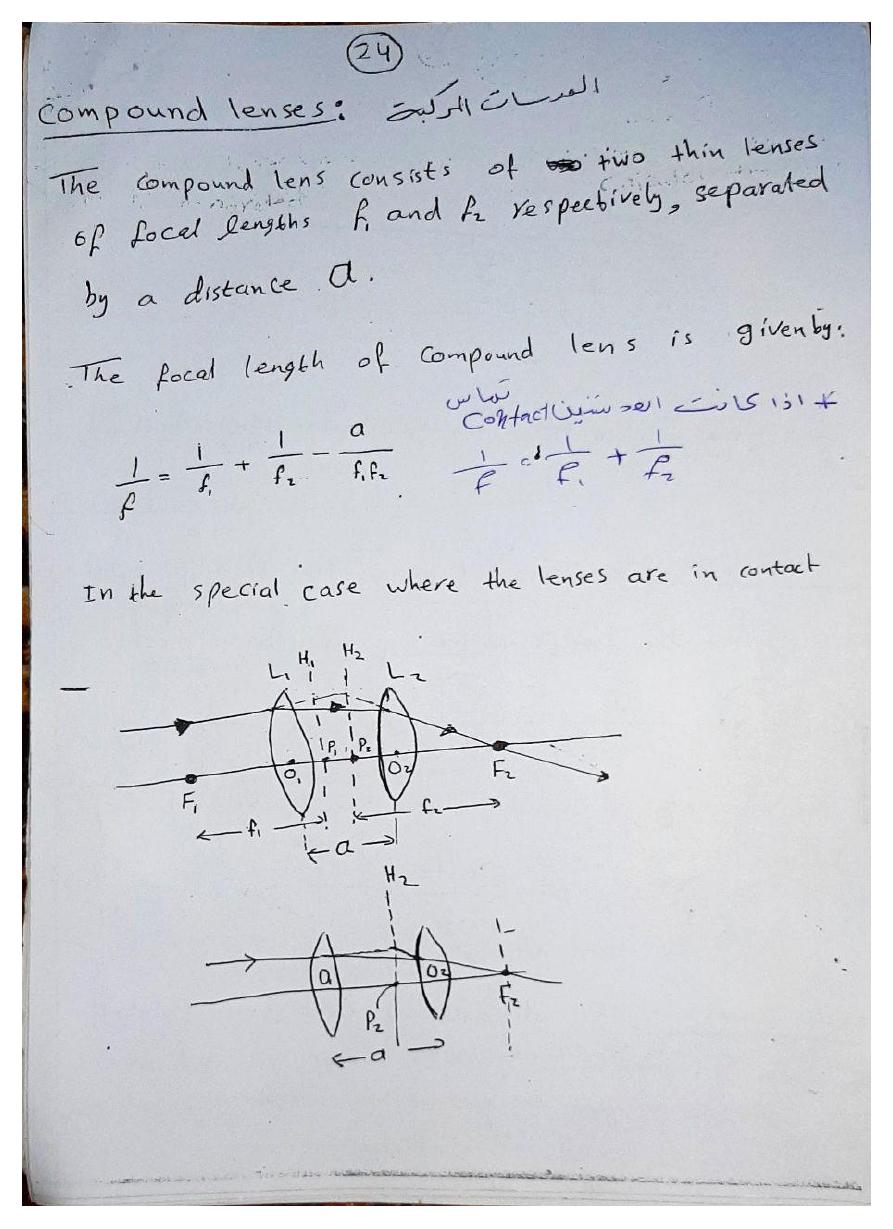 24
Compound lenses: العدسات المركبة
The compound lens consists of two thin lenses
of focal lengths f₁ and f₂ respectively, separated
by a distance a.
The focal length of compound lens is given by:
* اذا كانت العدستين contact تماس
1/f = 1/f₁ + 1/f₂ - a/f₁f₂
1/f = 1/f₁ + 1/f₂
In the special case where the lenses are in contact
L₁ H₁ H₂ L₂
F₁ O₁ P₁ P₂ O₂ F₂
f₁ f₂
a
H₂
a O₂ F₂
P₂
a